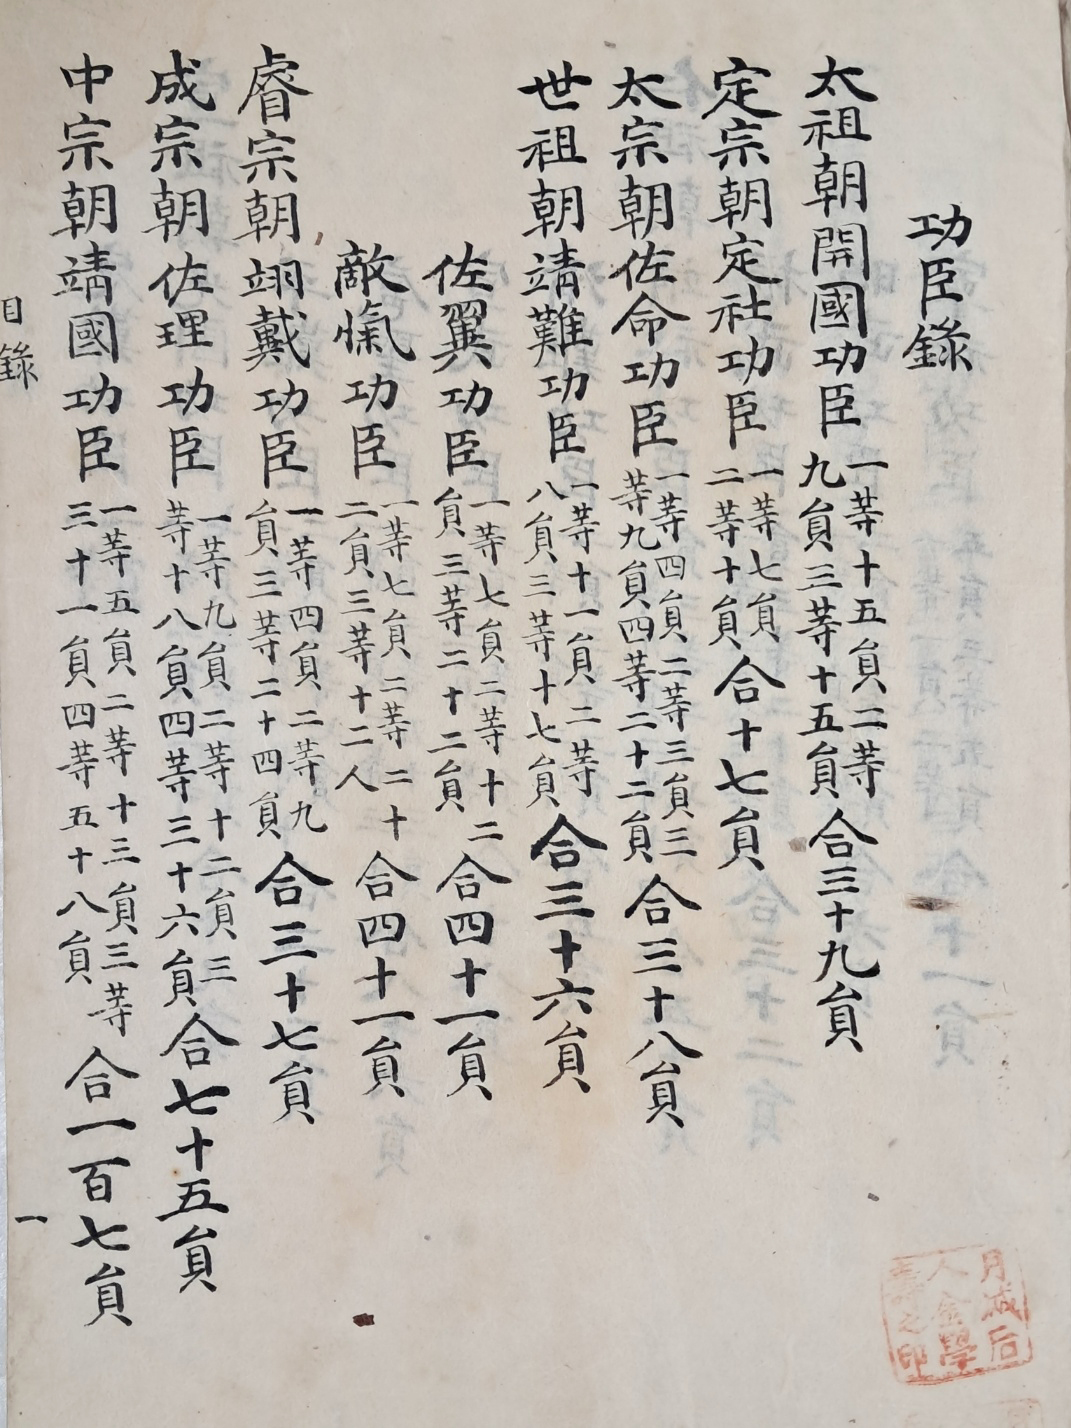 功臣錄
太祖朝開國功臣 一等十五員二等九員三等十五員 合三十九員
定宗朝定社功臣 一等七員二等十員 合十七員
太宗朝佐命功臣 一等四員二等三員三等九員四等二十二員 合三十八員
世祖朝靖難功臣 一等十一員二等八員三等十七員 合三十六員
佐翼功臣 一等七員二等十二員三等二十二員 合四十一員
敵愾功臣 一等七員二等二十二員三等十二人 合四十一員
睿宗朝翊戴功臣 一等四員二等九員三等二十四員 合三十七員
成宗朝佐理功臣 一等九員二等十二員三等十八員四等三十六員 合七十五員
中宗朝靖國功臣 一等五員二等十三員三等三十一員四等五十八員 合一百七員
目錄 一
月城后
人金學
之印